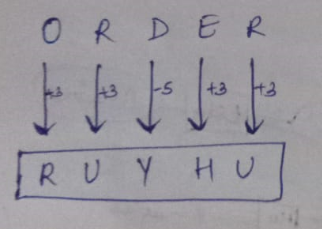 O R D E R
+3 +3 -5 +3 +3
R U Y H U